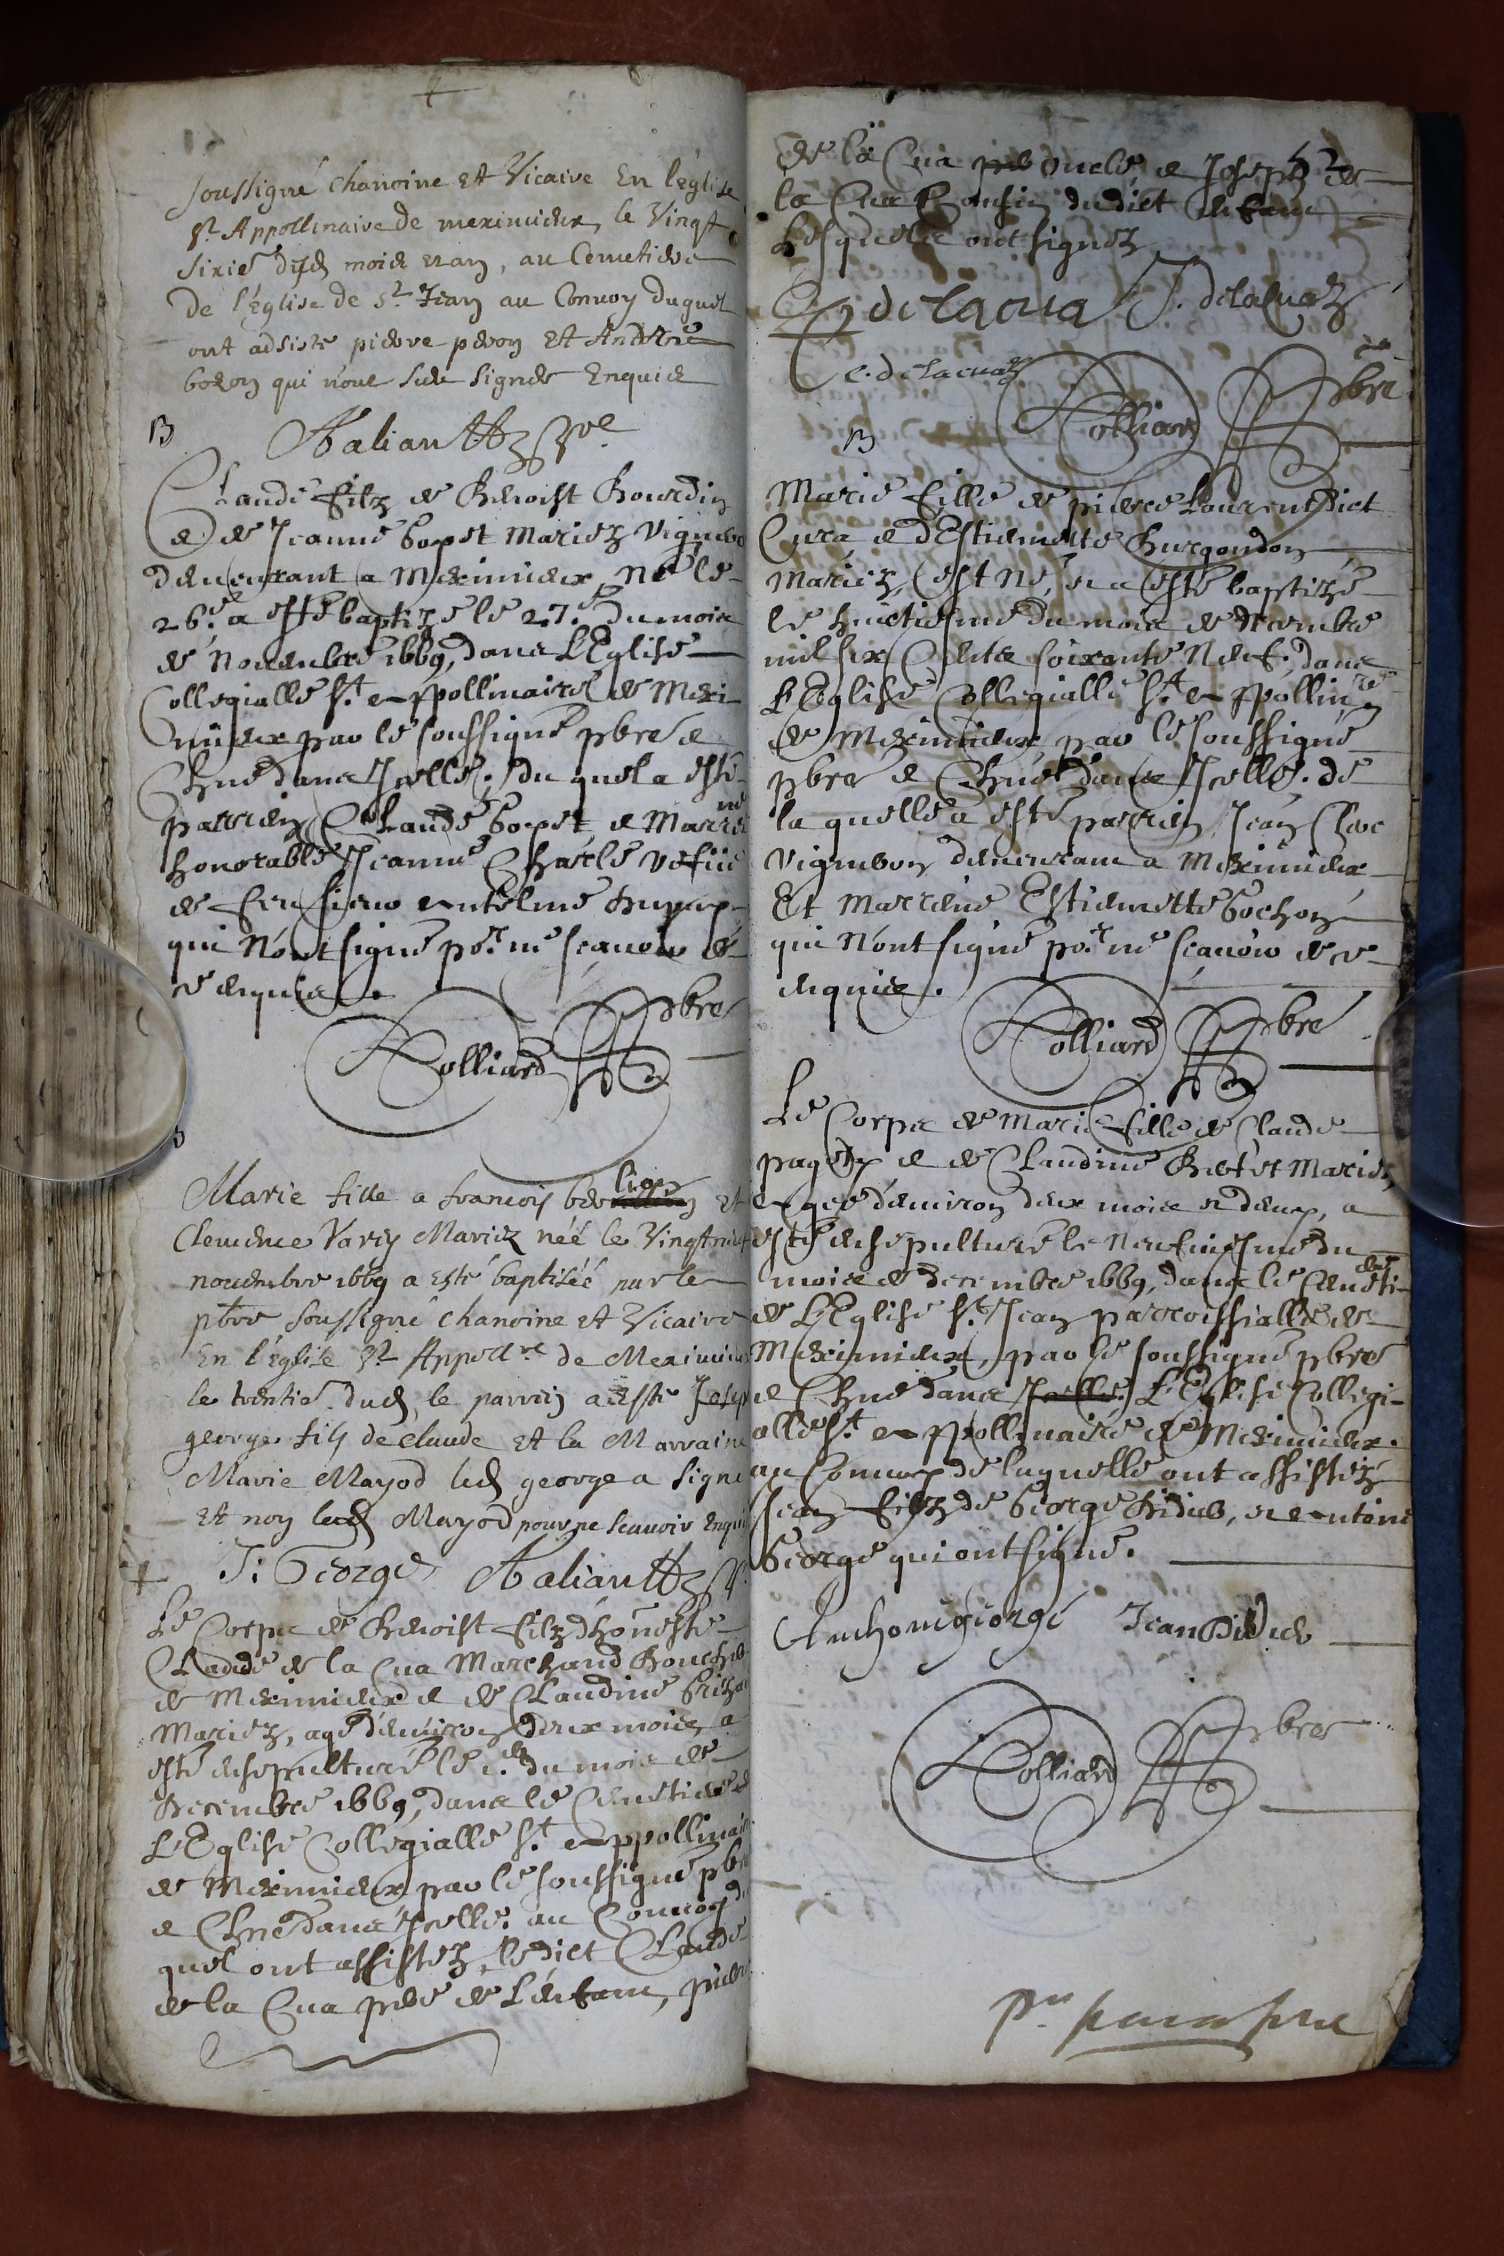 soussigné chanoine et Vicaire En l'église
St Appollinaire de meximieux le Vingt
sixie dud mois et an, au Cemetiere
de l'église de St Jean au Convoy duquel
ont adsisté pierre peron Et Andre
boron qui n'ont sceu signer Enquis
B
Claude filz de Benoist Bourdin
& de Jeanne Goyet Mariez Vigneron
demeurant a Meximieux, Né le
26.e a esté baptizé le 27.e du mois
de Nouembre 1669, dans L'Eglise
Collegialle St Appollinaire de Mexi-
mieux par le soussigné pbre &
Chne dans Jcelle. du quel a esté
parrein Claude Goyet & Marreine
honorable Jeanne Charle vefue
de feu sieur Antelme
qui N'ont signé pour ne scauoir de
ce enquis.
Rolliard pbre
Marie fille a francois
lion Et
Clemence Varey Mariez née le Vingtneuf
nouembre 1669 a esté baptisée par le
pbre soussigné chanoine et Vicaire
En l'église St Appollre de Meximieux
le trentie dud, le parrein a esté Josep
george fils de claude Et la Marraine
Marie Mayod led george a signé
Et non lad Mayod pour ne scauoir Enquis
J: George
+
Le Corps de Benoist filz d'honneste
Claude de la Cua Marchand Boucher
de Meximieux & de Claudine
Mariez, agé d'enuiron deux mois, a
esté ensepulturé le 1.er du mois de
Decembre 1669, dans le Cemetiere de
L'Eglise Collegialle St Appollinaire
de Meximieux par le soussigné pbre
& Chne dans Jcelle. au Conuoy du
quel ont assistez, ledict Claude
de la Cua pere de L'enfant, pierre
de la Cua oncle & Joseph de
la Cua Cousin dudict enfant
Lesquels ont signez
delacua J. delacua
C. delacua
Rolliard pbre
B
Marie fille de pierre Laurent dict
Cura & d'Estiennette Burgondon
Mariez, est Né, & a esté baptizé
le huictiesme du mois de decembre
mil six Cents soixante Neuf, dans
L'Eglise Collegialle St Appollinre
de Meximieux, par le soussigné
pbre & Chne dans Jcelle. de
la quelle a esté parrein Jean Clerc
vigneron demeurant a Meximieux
Et Marreine Estiennette Cochon
qui N'ont signé pour ne scauoir de ce
enquis.
Rolliard pbre
Le Corps de Marie fille de Claude
& de Claudine Mariez
agee d'enuiron deux mois & demy, a
esté ensepulturé le Neufuiesme du
mois de decembre 1669, dans le Cemeti-
de L'Eglise St Jean parroissialle de
Meximieux, par le soussigné pbre
& Chne dans Jcelle L'Eglise Collegi-
alle St Appollinaire de Meximieux.
au Conuoy de laquelle ont assistez
Jean filz de George Didier, & Antoine
George qui ont signé.
Anthoine george Jean Didier
Rolliard pbre